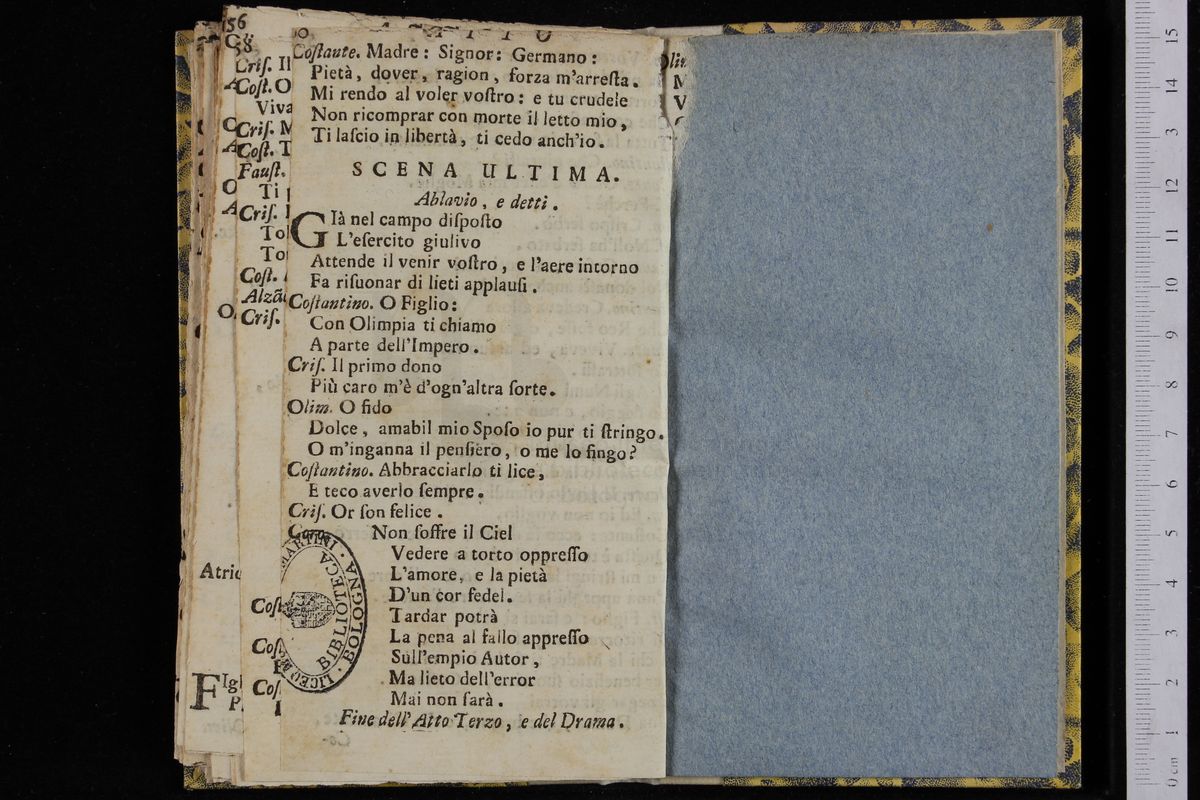 56
58
Criſ. Il
Coſt. O
Viva
Criſ. M
Coſt. T
Fauſt.
Ti
Criſ.
To
To
Coſt.
Criſ.
Atrio
Coſt
FIgl
Coſtante. Madre: Signor: Germano:
Pietà, dover, ragion, forza m'arreſta.
Mi rendo al voler voſtro: e tu crudele
Non ricomprar con morte il letto mio,
Ti laſcio in libertà, ti cedo anch'io.
SCENA ULTIMA.
Ablavio, e detti.
GIà nel campo diſpoſto
L'eſercito giulivo
Attende il venir voſtro, e l'aere intorno
Fa riſuonar di lieti applauſi.
Coſtantino. O Figlio:
Con Olimpia ti chiamo
A parte dell'Impero.
Criſ. Il primo dono
Più caro m'è d'ogn'altra ſorte.
Olim. O fido
Dolce, amabil mio Spoſo io pur ti ſtringo.
O m'inganna il penſiero, o me lo fingo?
Coſtantino. Abbracciarlo ti lice,
E teco averlo ſempre.
Criſ. Or ſon felice.
Non ſoffre il Ciel
Vedere a torto oppreſſo
L'amore, e la pietà
D'un cor fedel.
Tardar potrà
La pena al fallo appreſſo
Sull'empio Autor,
Ma lieto dell'error
Mai non ſarà.
Fine dell'Atto Terzo, e del Drama.
LICEO MARTINI. BOLOGNA.
BIBLIOTECA
0 cm 1 2 3 4 5 6 7 8 9 10 11 12 3 14 15